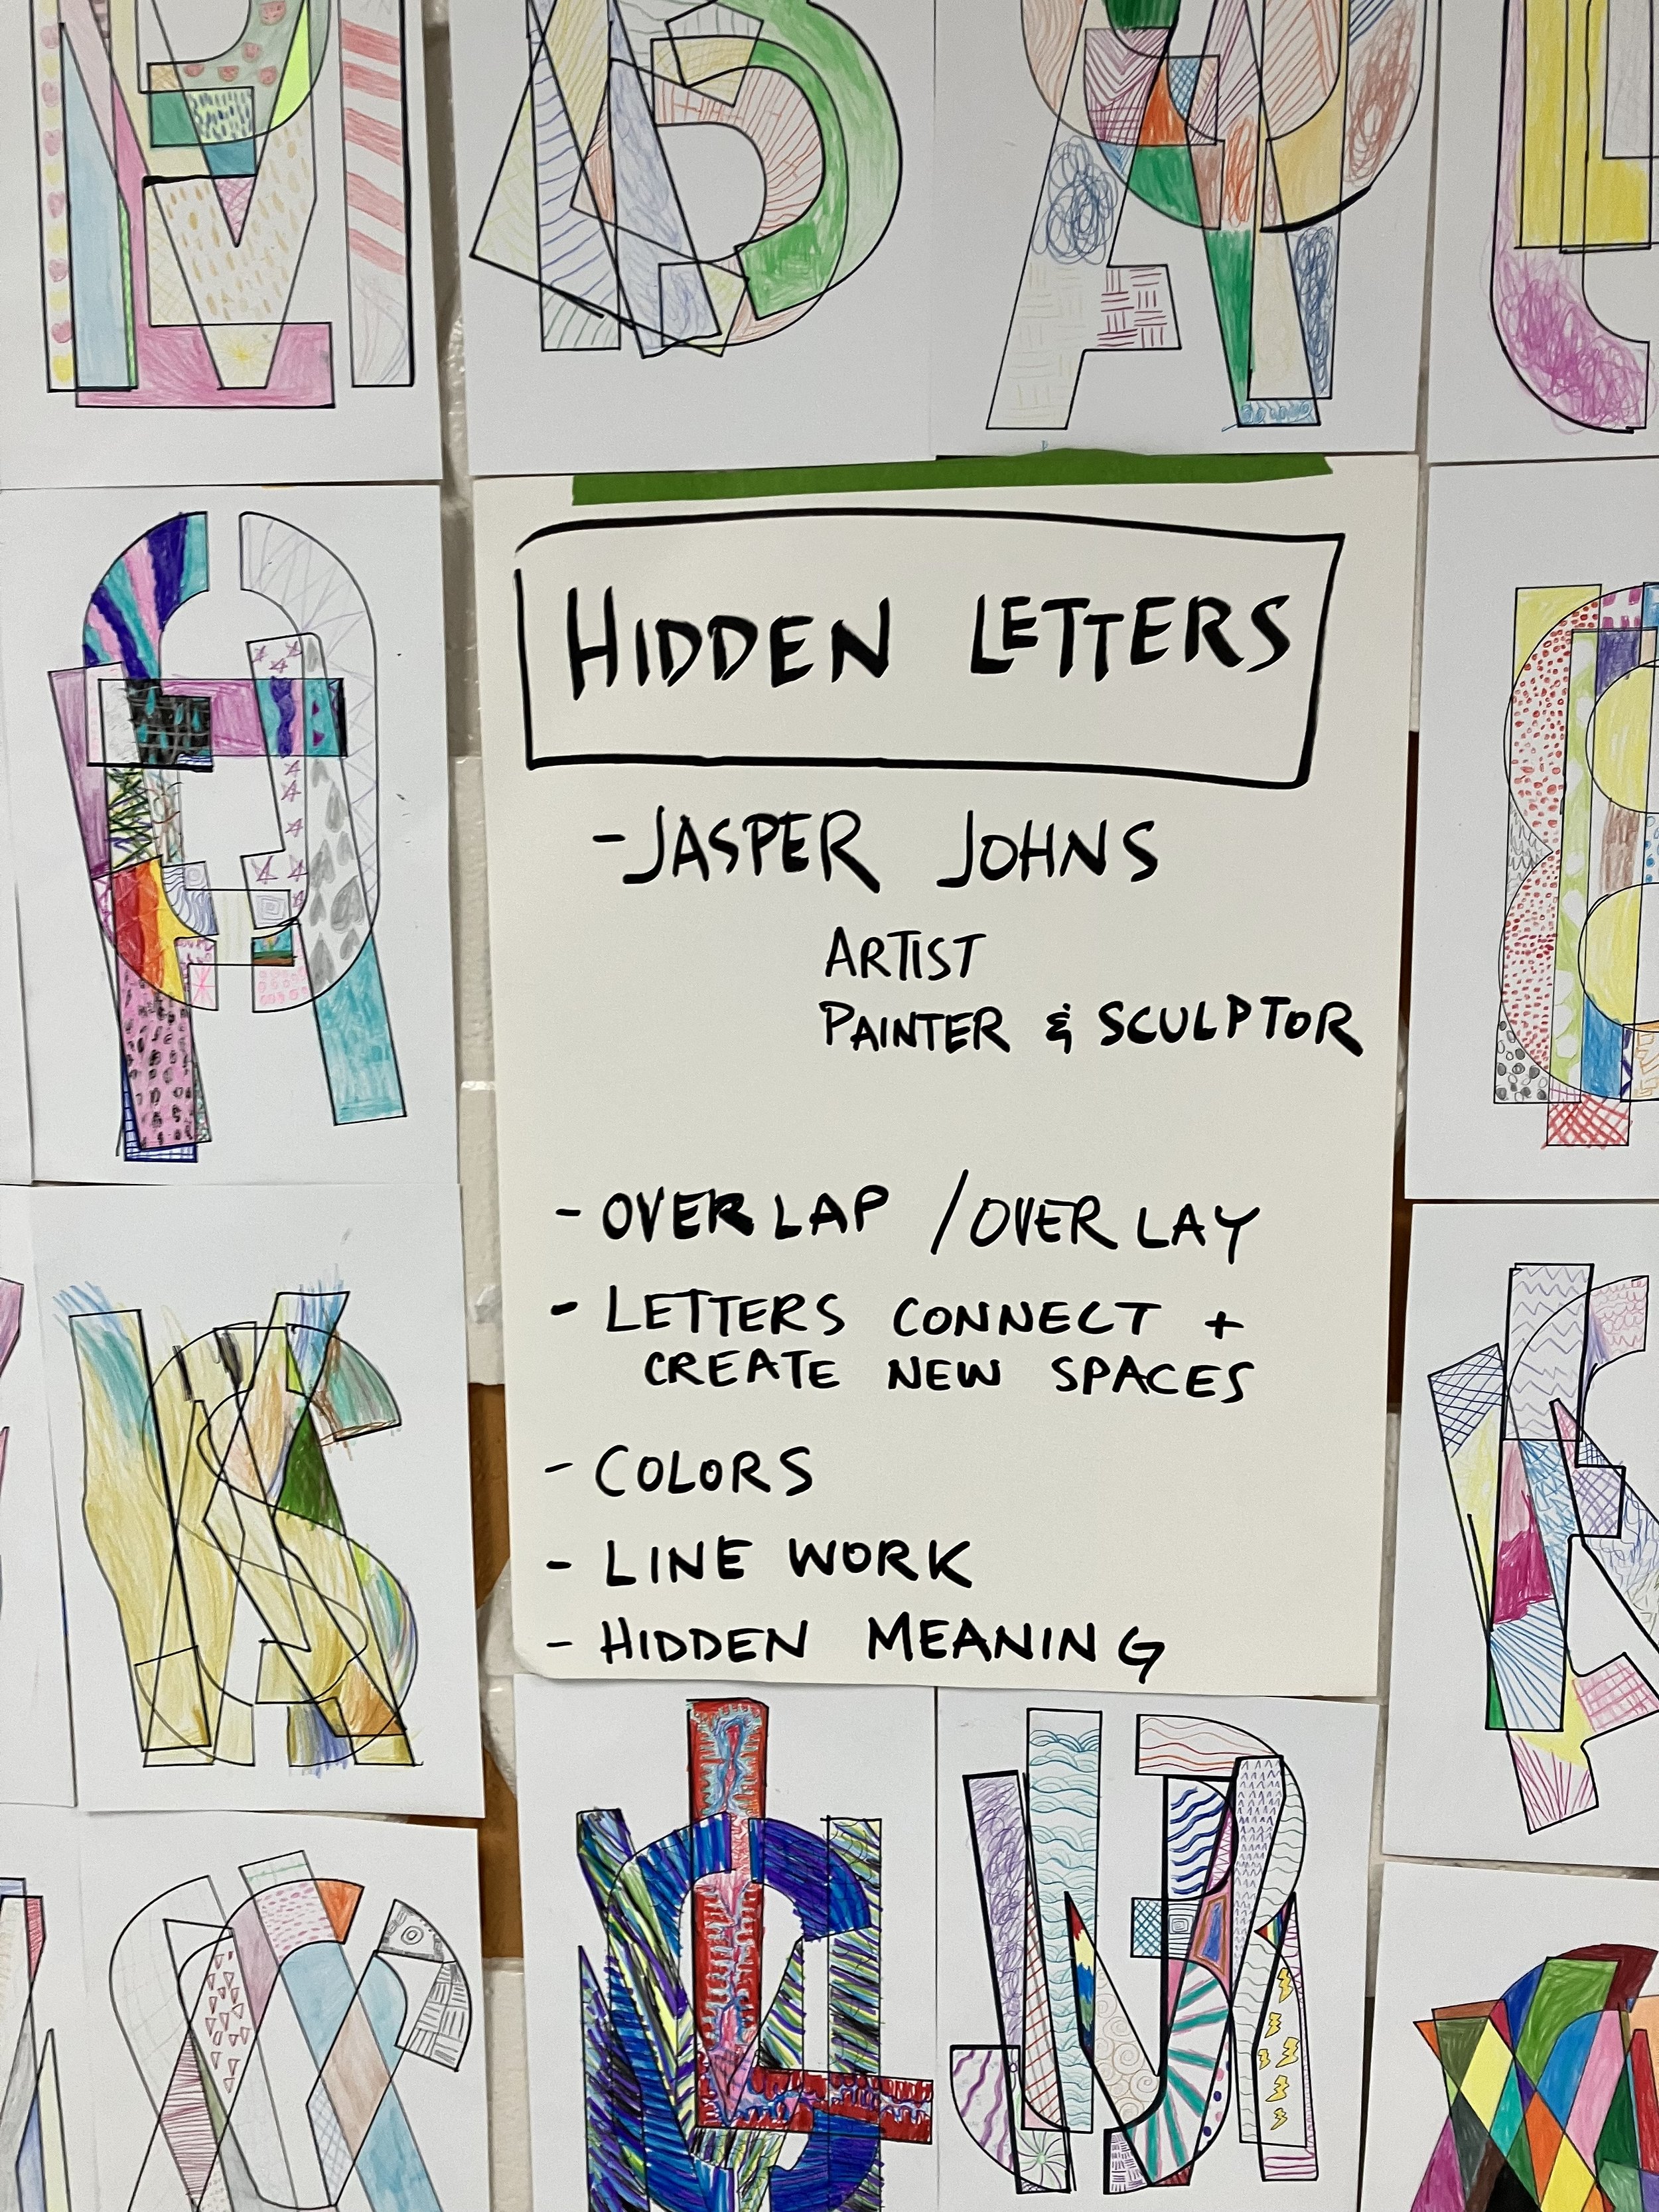 HIDDEN LETTERS
- JASPER JOHNS
ARTIST
PAINTER & SCULPTOR
- OVERLAP / OVERLAY
- LETTERS CONNECT +
CREATE NEW SPACES
- COLORS
- LINE WORK
- HIDDEN MEANING